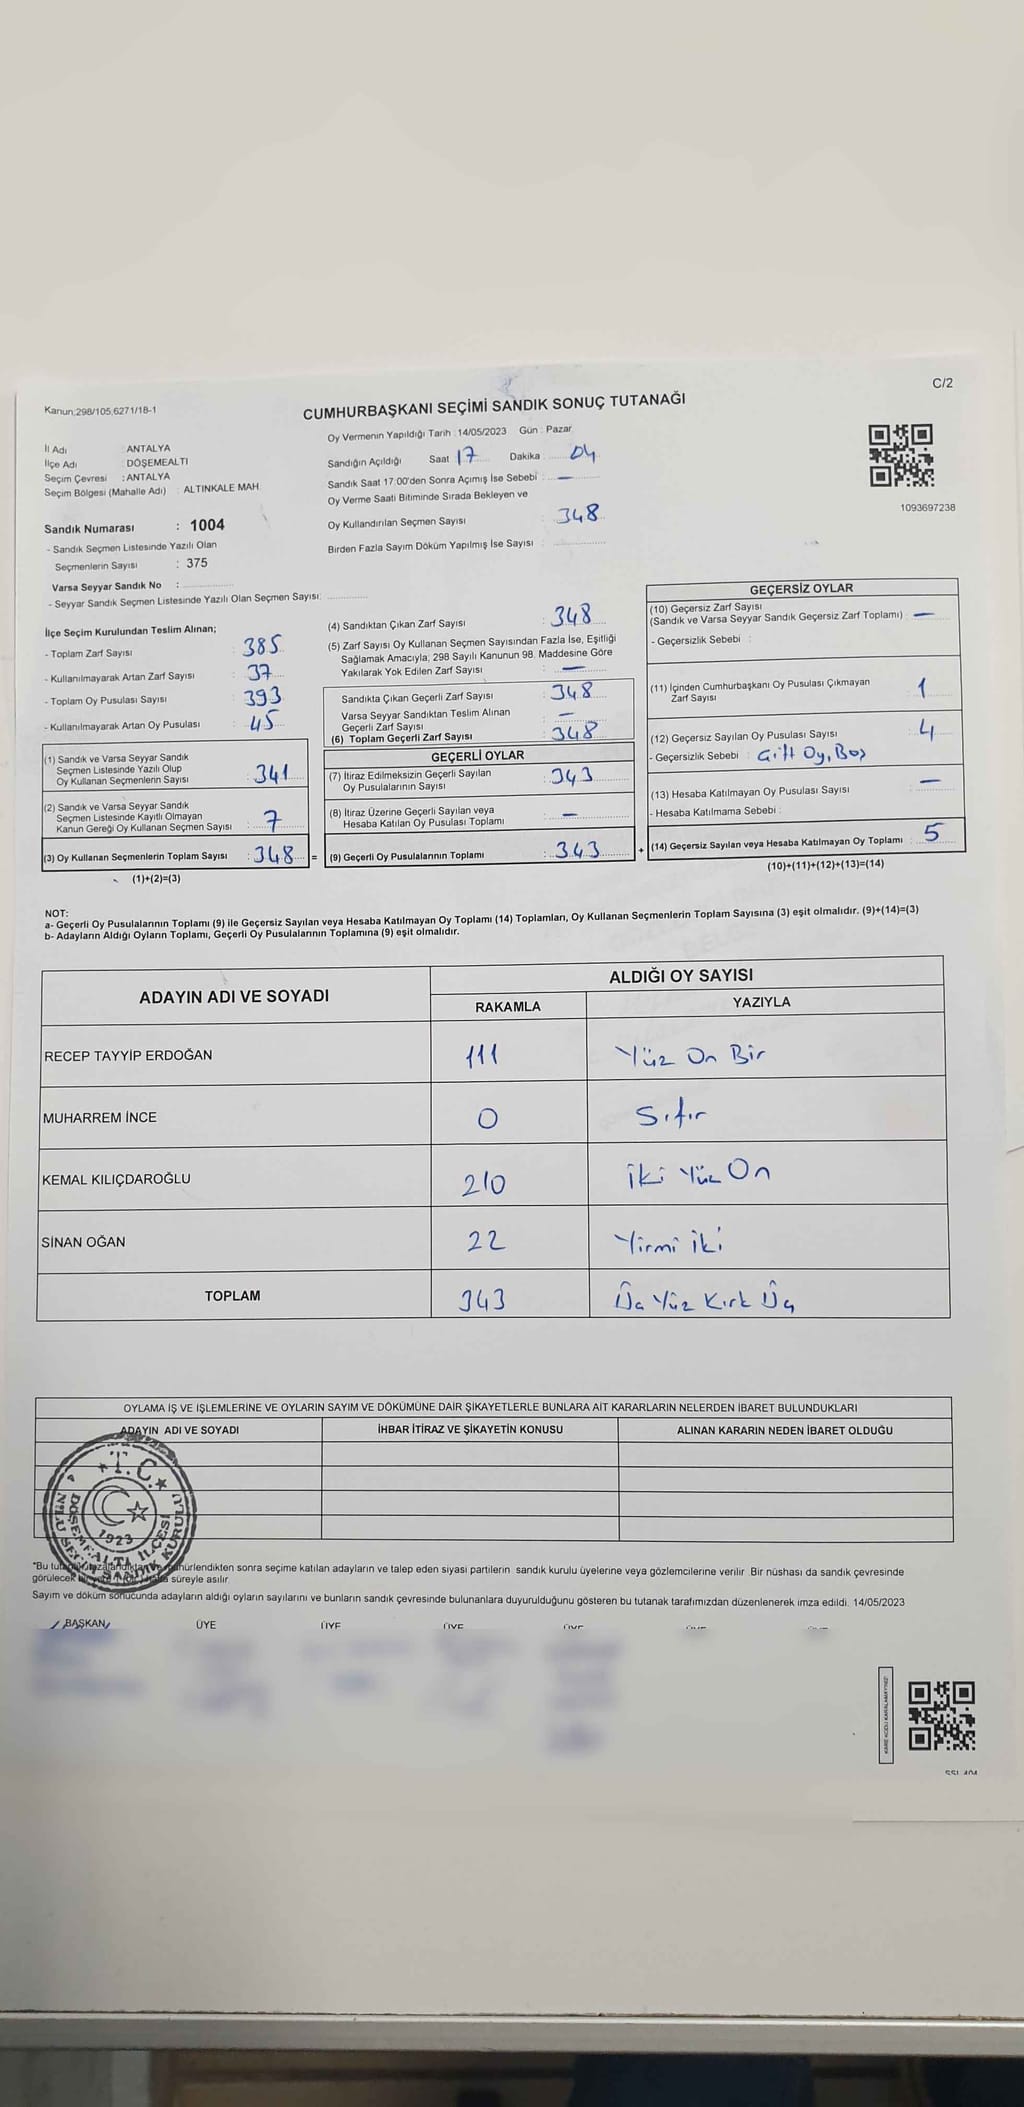 C/2
Kanun:298/105,6271/18-1
CUMHURBAŞKANI SEÇİMİ SANDIK SONUÇ TUTANAĞI
İl Adı : ANTALYA
İlçe Adı : DÖŞEMEALTI
Seçim Çevresi : ANTALYA
Seçim Bölgesi (Mahalle Adı) : ALTINKALE MAH.
Sandık Numarası : 1004
- Sandık Seçmen Listesinde Yazılı Olan
Seçmenlerin Sayısı : 375
Varsa Seyyar Sandık No :
- Seyyar Sandık Seçmen Listesinde Yazılı Olan Seçmen Sayısı:
Oy Vermenin Yapıldığı Tarih : 14/05/2023 Gün : Pazar
Sandığın Açıldığı Saat 17 Dakika : 04
Sandık Saat 17:00'den Sonra Açımış İse Sebebi : —
Oy Verme Saati Bitiminde Sırada Bekleyen ve
Oy Kullandırılan Seçmen Sayısı : 348
Birden Fazla Sayım Döküm Yapılmış İse Sayısı :
1093697238
İlçe Seçim Kurulundan Teslim Alınan;
- Toplam Zarf Sayısı : 385
- Kullanılmayarak Artan Zarf Sayısı : 37
- Toplam Oy Pusulası Sayısı : 393
- Kullanılmayarak Artan Oy Pusulası : 45
(1) Sandık ve Varsa Seyyar Sandık
Seçmen Listesinde Yazılı Olup
Oy Kullanan Seçmenlerin Sayısı : 341
(2) Sandık ve Varsa Seyyar Sandık
Seçmen Listesinde Kayıtlı Olmayan
Kanun Gereği Oy Kullanan Seçmen Sayısı : 7
(3) Oy Kullanan Seçmenlerin Toplam Sayısı : 348
(1)+(2)=(3)
(4) Sandıktan Çıkan Zarf Sayısı : 348
(5) Zarf Sayısı Oy Kullanan Seçmen Sayısından Fazla İse, Eşitliği
Sağlamak Amacıyla; 298 Sayılı Kanunun 98. Maddesine Göre
Yakılarak Yok Edilen Zarf Sayısı : —
Sandıkta Çıkan Geçerli Zarf Sayısı : 348
Varsa Seyyar Sandıktan Teslim Alınan
Geçerli Zarf Sayısı : —
(6) Toplam Geçerli Zarf Sayısı : 348
GEÇERLİ OYLAR
(7) İtiraz Edilmeksizin Geçerli Sayılan
Oy Pusulalarının Sayısı : 343
(8) İtiraz Üzerine Geçerli Sayılan veya
Hesaba Katılan Oy Pusulası Toplamı : —
= (9) Geçerli Oy Pusulalarının Toplamı : 343
GEÇERSİZ OYLAR
(10) Geçersiz Zarf Sayısı
(Sandık ve Varsa Seyyar Sandık Geçersiz Zarf Toplamı) : —
- Geçersizlik Sebebi :
(11) İçinden Cumhurbaşkanı Oy Pusulası Çıkmayan
Zarf Sayısı : 1
(12) Geçersiz Sayılan Oy Pusulası Sayısı : 4
- Geçersizlik Sebebi : Çift Oy, Boş
(13) Hesaba Katılmayan Oy Pusulası Sayısı : —
- Hesaba Katılmama Sebebi :
+ (14) Geçersiz Sayılan veya Hesaba Katılmayan Oy Toplamı : 5
(10)+(11)+(12)+(13)=(14)
NOT:
a- Geçerli Oy Pusulalarının Toplamı (9) ile Geçersiz Sayılan veya Hesaba Katılmayan Oy Toplamı (14) Toplamları, Oy Kullanan Seçmenlerin Toplam Sayısına (3) eşit olmalıdır. (9)+(14)=(3)
b- Adayların Aldığı Oyların Toplamı, Geçerli Oy Pusulalarının Toplamına (9) eşit olmalıdır.
ADAYIN ADI VE SOYADI ALDIĞI OY SAYISI
RAKAMLA YAZIYLA
RECEP TAYYİP ERDOĞAN 111 Yüz On Bir
MUHARREM İNCE 0 Sıfır
KEMAL KILIÇDAROĞLU 210 İki Yüz On
SİNAN OĞAN 22 Yirmi iki
TOPLAM 343 Üç Yüz Kırk Üç
OYLAMA İŞ VE İŞLEMLERİNE VE OYLARIN SAYIM VE DÖKÜMÜNE DAİR ŞİKAYETLERLE BUNLARA AİT KARARLARIN NELERDEN İBARET BULUNDUKLARI
ADAYIN ADI VE SOYADI İHBAR İTİRAZ VE ŞİKAYETİN KONUSU ALINAN KARARIN NEDEN İBARET OLDUĞU
T.C.
1923
DÖŞEMEALTI İLÇESİ
hürlendikten sonra seçime katılan adayların ve talep eden siyasi partilerin sandık kurulu üyelerine veya gözlemcilerine verilir. Bir nüshası da sandık çevresinde
görülecek süreyle asılır.
Sayım ve döküm sonucunda adayların aldığı oyların sayılarını ve bunların sandık çevresinde bulunanlara duyurulduğunu gösteren bu tutanak tarafımızdan düzenlenerek imza edildi. 14/05/2023
BAŞKAN ÜYE ÜYE ÜYE